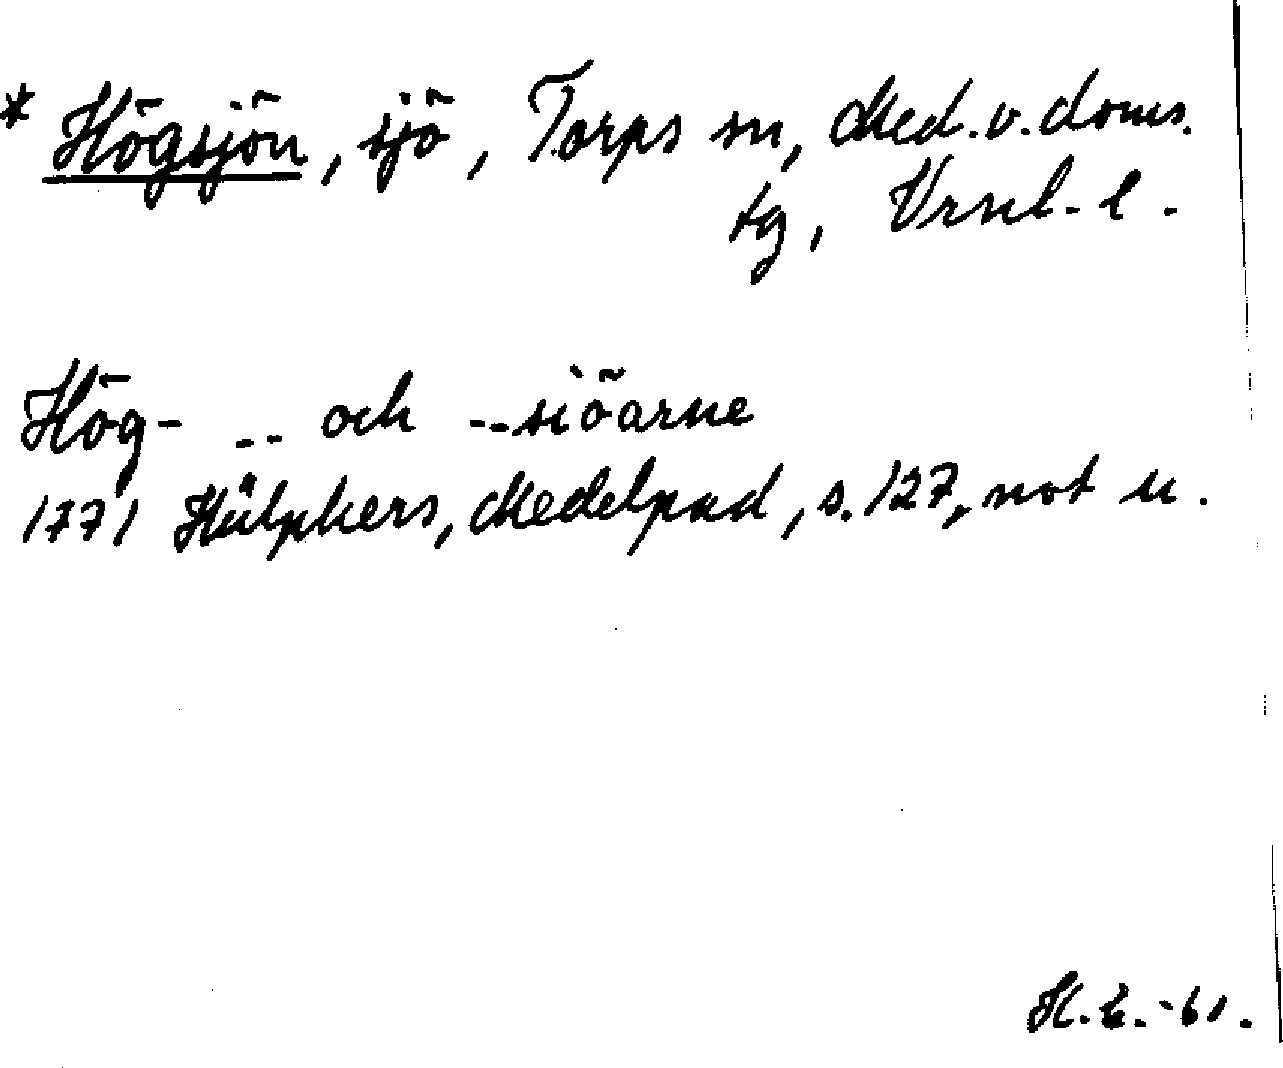 * Högsjön, sjö, Torps sn, Med. v. doms.
tg, Vrnl. l.
Hög- -- och --siöarne
1771 Hülphers, Medelpad, s. 127, not u.
H. E. -61.